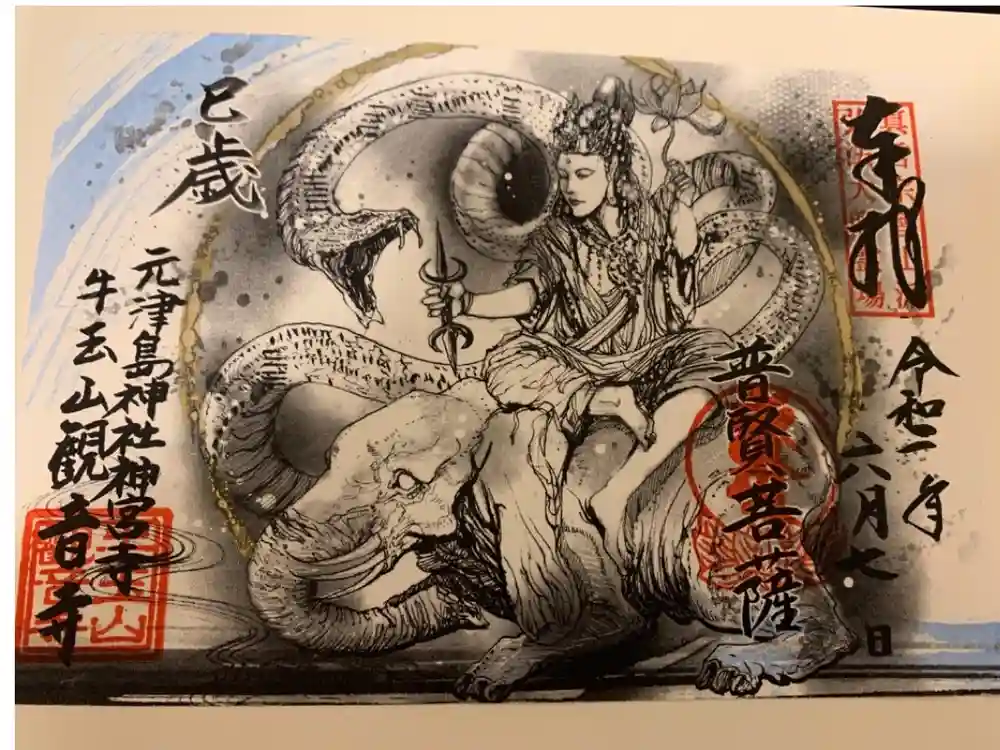 奉拝
令和二年
六月七日
普賢菩薩
巳歳
元津島神社神宮寺
牛玉山觀音寺